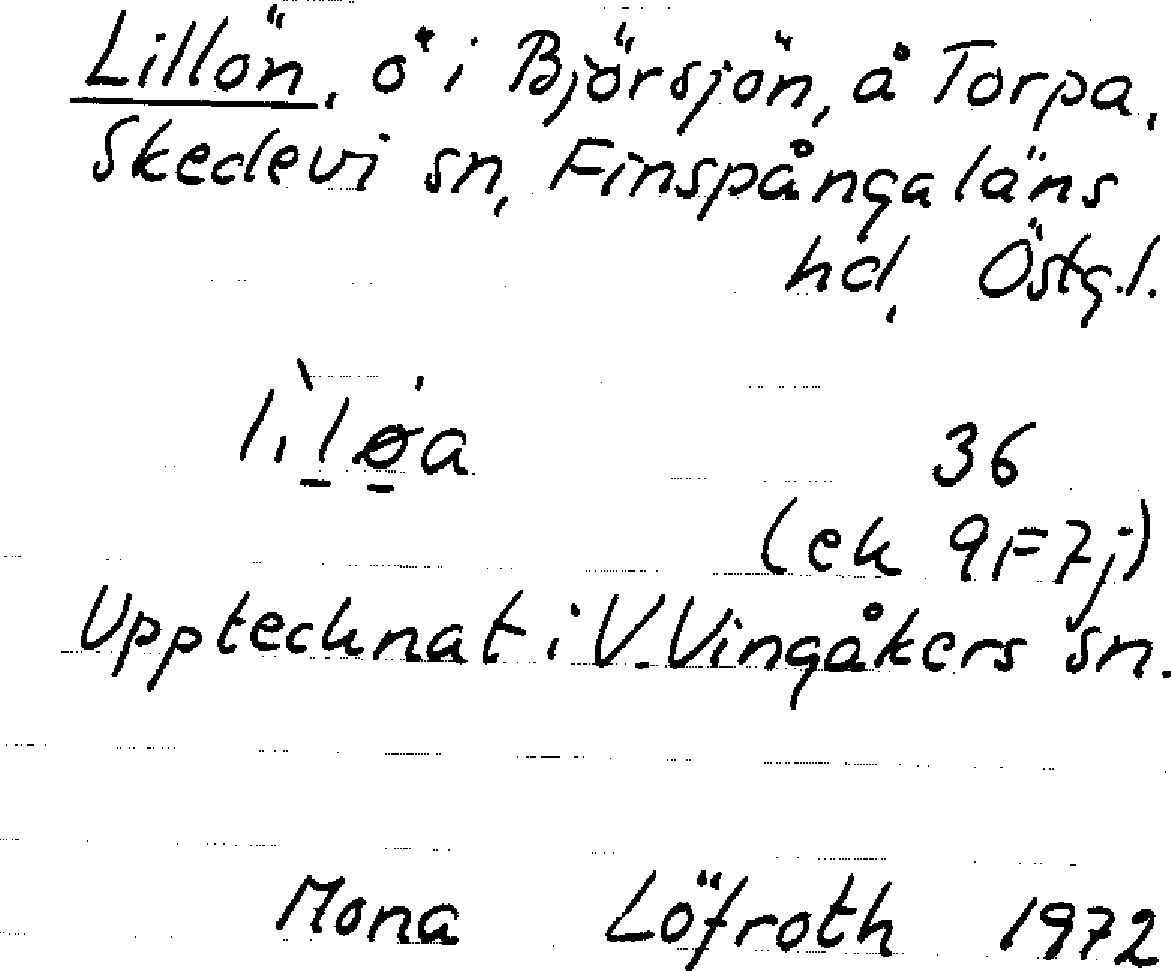 Lillön, ö i Björsjön, å Torpa,
Skedevi sn, Finspånga läns
hd, Östg.l.
lìl̠ǿ̠a 36
(ek 9F7j)
Upptecknat i V. Vingåkers sn.
Mona Löfroth 1972